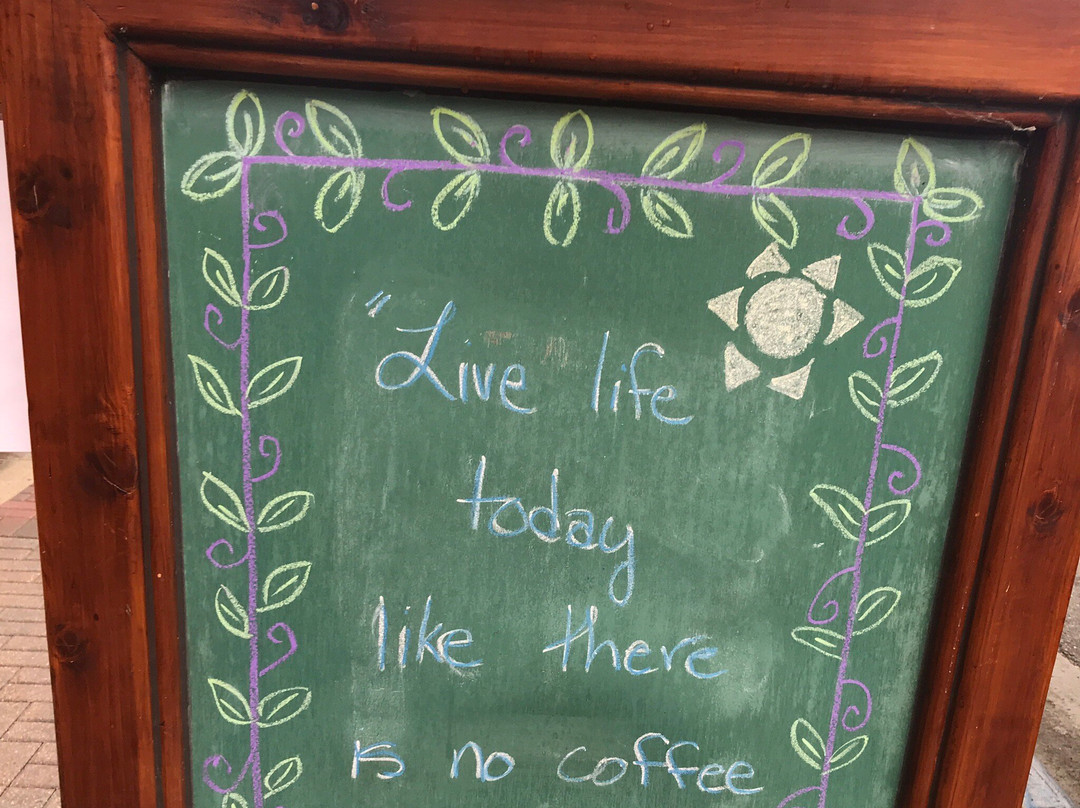 "Live life
today
like there
is no coffee